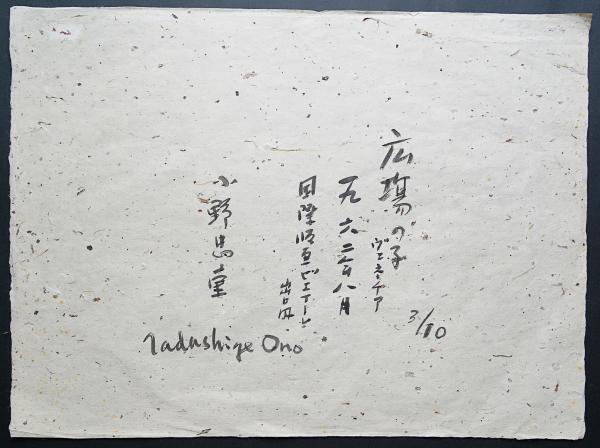 広場の子
ヴェネチア
一九六二年八月
国際版画ビエンナーレ
出品
小野忠重
3/10
Tadashige Ono